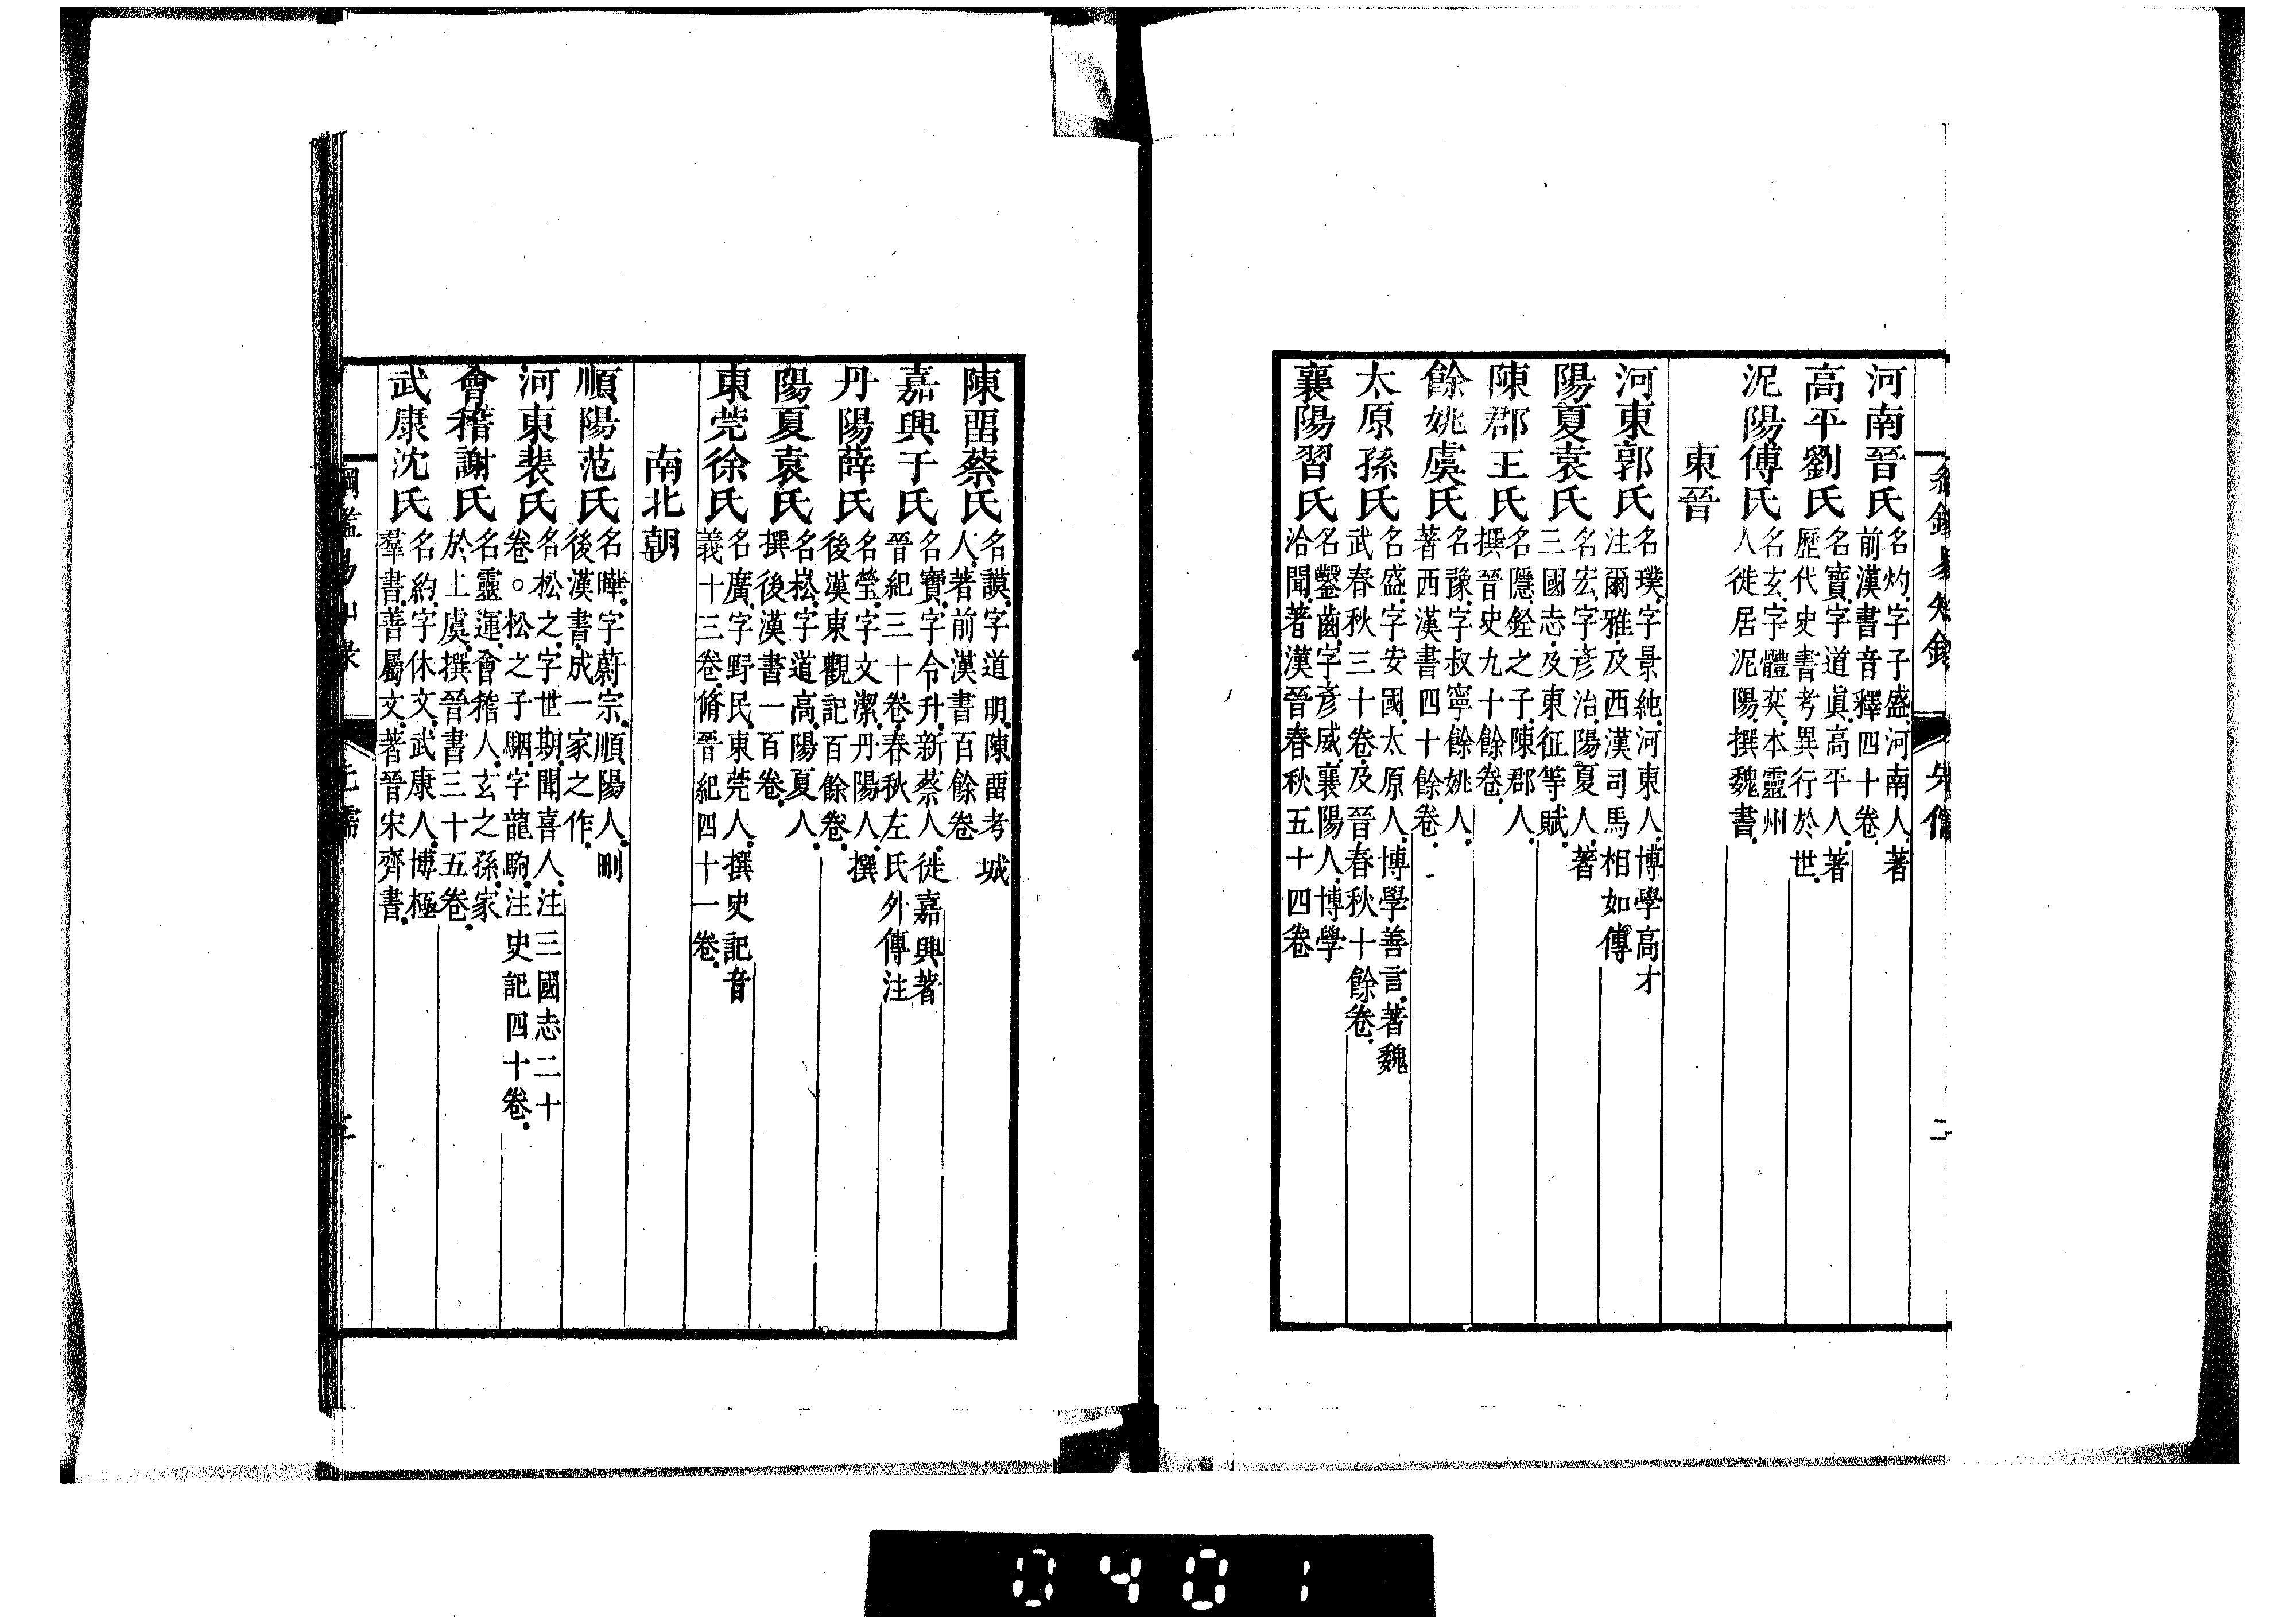 綱鑑易知錄 先儒 二
河南晉氏 名灼字子盛河南人著
前漢書音釋四十卷
高平劉氏 名寶字道眞高平人著
歷代史書考異行於世
泥陽傅氏 名玄字體奕本靈州
人徙居泥陽撰魏書
東晉
河東郭氏 名璞字景純河東人博學高才
注爾雅及西漢司馬相如傳
陽夏袁氏 名宏字彥治陽夏人著
三國志及東征等賦
陳郡王氏 名隱銓之子陳郡人
撰晉史九十餘卷
餘姚虞氏 名豫字叔寧餘姚人
著西漢書四十餘卷
太原孫氏 名盛字安國太原人博學善言著魏
武春秋三十卷及晉春秋十餘卷
襄陽習氏 名鑿齒字彥威襄陽人博學
洽聞著漢晉春秋五十四卷
陳畱蔡氏 名謨字道明陳畱考城
人著前漢書百餘卷
嘉興于氏 名寶字令升新蔡人徙嘉興著
晉紀三十卷春秋左氏外傳注
丹陽薛氏 名瑩字文潔丹陽人撰
後漢東觀記百餘卷
陽夏袁氏 名崧字道高陽夏人
撰後漢書一百卷
東莞徐氏 名廣字野民東莞人撰史記音
義十三卷脩晉紀四十一卷
南北朝
順陽范氏 名曄字蔚宗順陽人刪
後漢書成一家之作
河東裴氏 名松之字世期聞喜人注三國志二十
卷○松之子駰字龍駒注史記四十卷
會稽謝氏 名靈運會稽人玄之孫家
於上虞撰晉書三十五卷
武康沈氏 名約字休文武康人博極
羣書善屬文著晉宋齊書
綱鑑易知錄 先儒 三
0401